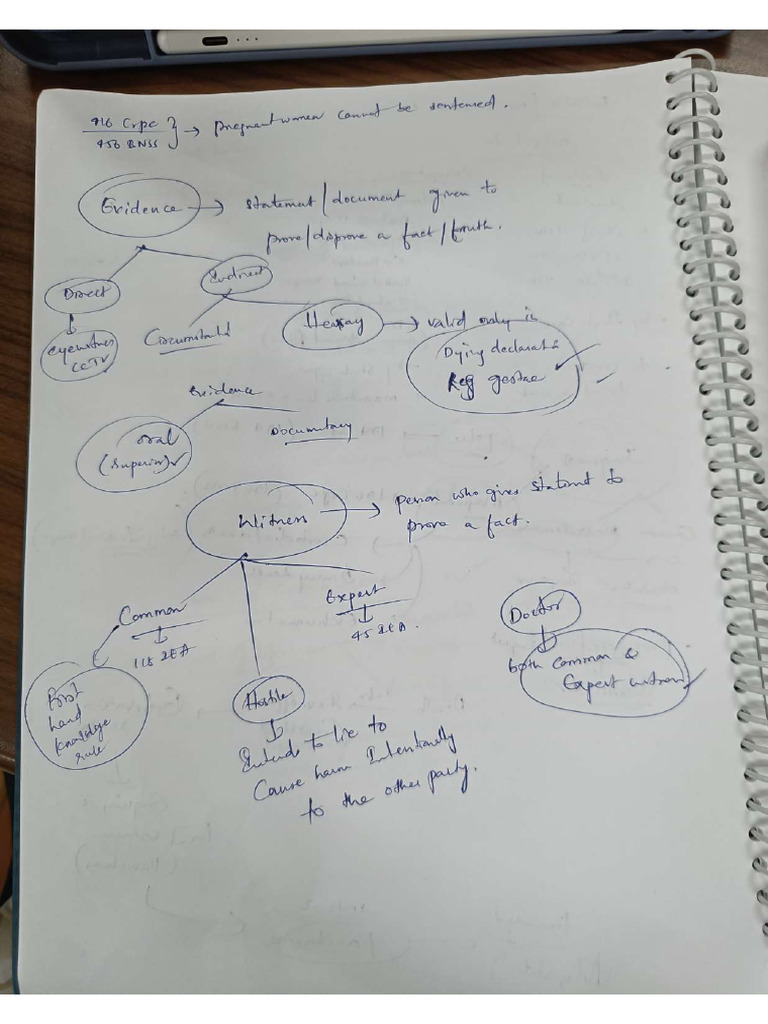 416 Crpc
456 BNSS } → pregnant women cannot be sentenced.
Evidence → statement/document given to
prove/disprove a fact/truth.
Direct
Indirect
eyewitness
CCTV
Circumstantial
Hearsay → valid only is
Dying declaratn
Res gestae
Evidence
oral
(superior)
Documentary
Witness → person who gives statement to
prove a fact.
Common
118 IEA
Expert
45 IEA.
Doctor
both common &
Expert witness
First
hand
knowledge
rule
Hostile
Intends to lie to
Cause harm Intentionally
to the other party.